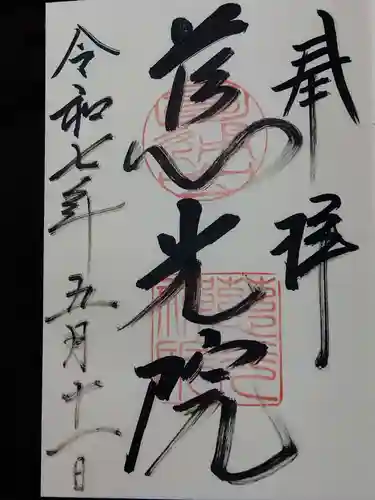 奉拝
慈光院
令和七年
五月十一日